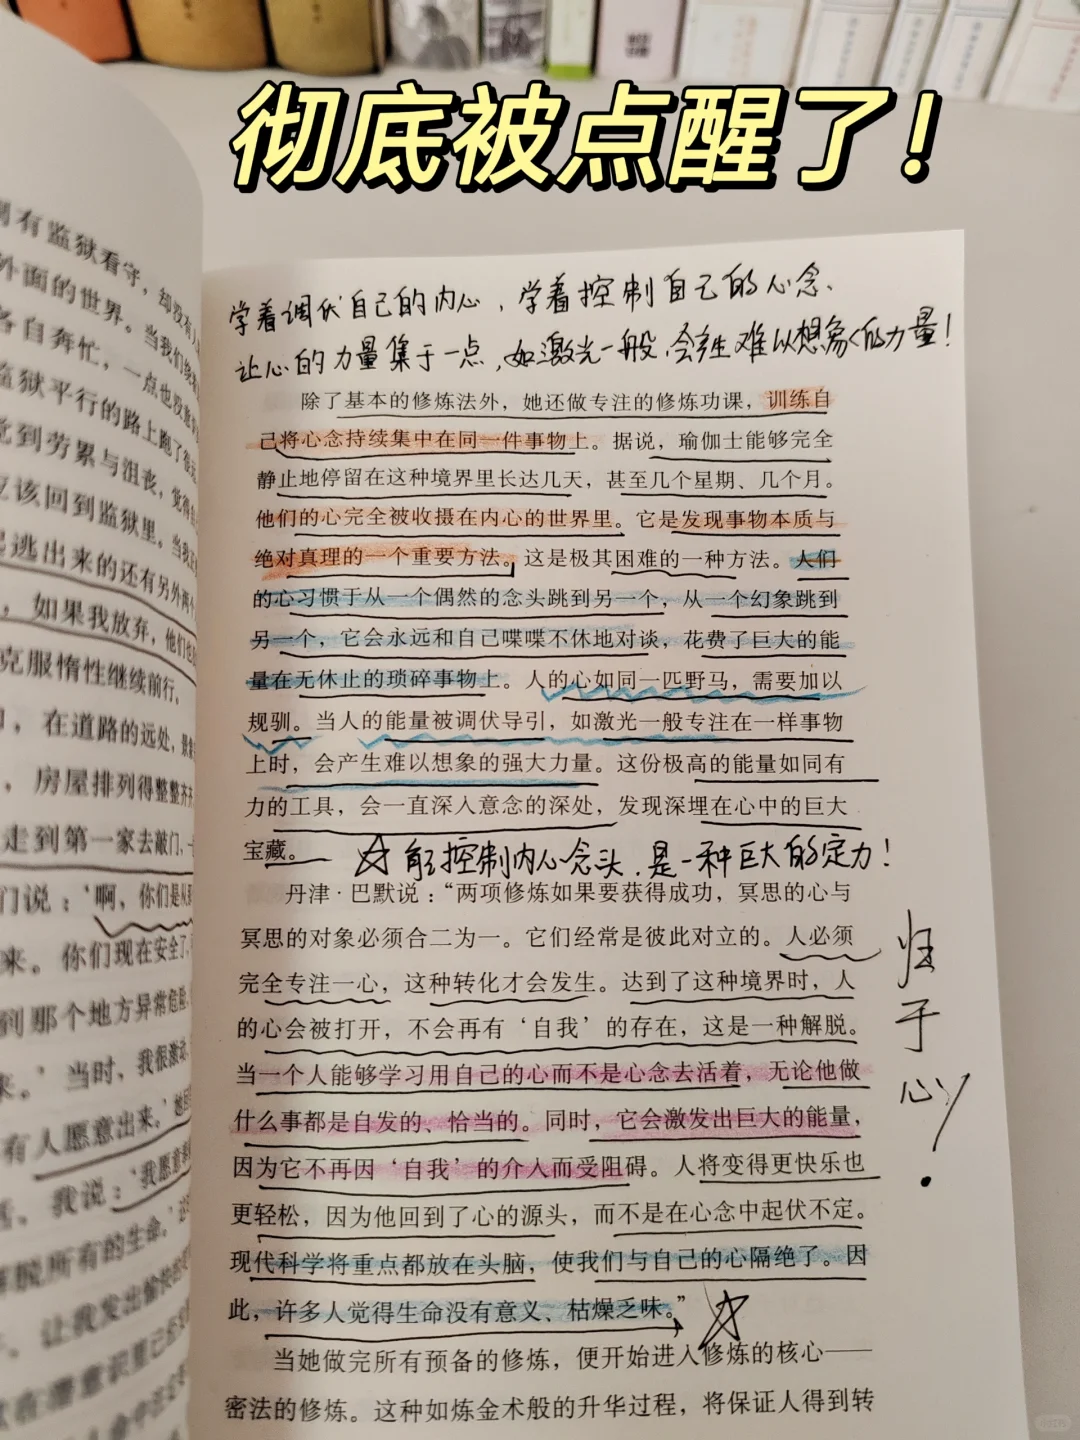 彻底被点醒了!
学着调伏自己的内心,学着控制自己的心念、
让心的力量集于一点,如激光一般,会产生难以想象的力量!
除了基本的修炼法外,她还做专注的修炼功课,训练自
己将心念持续集中在同一件事物上。据说,瑜伽士能够完全
静止地停留在这种境界里长达几天,甚至几个星期、几个月。
他们的心完全被收摄在内心的世界里。它是发现事物本质与
绝对真理的一个重要方法。这是极其困难的一种方法。人们
的心习惯于从一个偶然的念头跳到另一个,从一个幻象跳到
另一个,它会永远和自己喋喋不休地对谈,花费了巨大的能
量在无休止的琐碎事物上。人的心如同一匹野马,需要加以
规驯。当人的能量被调伏导引,如激光一般专注在一样事物
上时,会产生难以想象的强大力量。这份极高的能量如同有
力的工具,会一直深入意念的深处,发现深埋在心中的巨大
宝藏。
☆能控制内心念头,是一种巨大的定力!
丹津·巴默说:“两项修炼如果要获得成功,冥思的心与
冥思的对象必须合二为一。它们经常是彼此对立的。人必须
完全专注一心,这种转化才会发生。达到了这种境界时,人
的心会被打开,不会再有‘自我’的存在,这是一种解脱。
当一个人能够学习用自己的心而不是心念去活着,无论他做
什么事都是自发的、恰当的。同时,它会激发出巨大的能量,
因为它不再因‘自我’的介入而受阻碍。人将变得更快乐也
更轻松,因为他回到了心的源头,而不是在心念中起伏不定。
现代科学将重点都放在头脑,使我们与自己的心隔绝了。因
此,许多人觉得生命没有意义、枯燥乏味。”
当她做完所有预备的修炼,便开始进入修炼的核心——
密法的修炼。这种如炼金术般的升华过程,将保证人得到转
归于心!
有监狱看守,却没有人
外面的世界。当我们绕着
各自奔忙,一点也没
监狱平行的路上跑了很
到劳累与沮丧,觉得
应该回到监狱里。当我
逃出来的还有另外两个
,如果我放弃,他们也
克服惰性继续前行。
,在道路的远处,
,房屋排列得整整齐齐
走到第一家去敲门、一
们说:‘啊,你们是从
来。你们现在安全了
到那个地方异常危险
来。’当时,我很激动
有人愿意出来。’她
我说:‘我愿意
解脱所有的生命。’
、让我发出愉快的